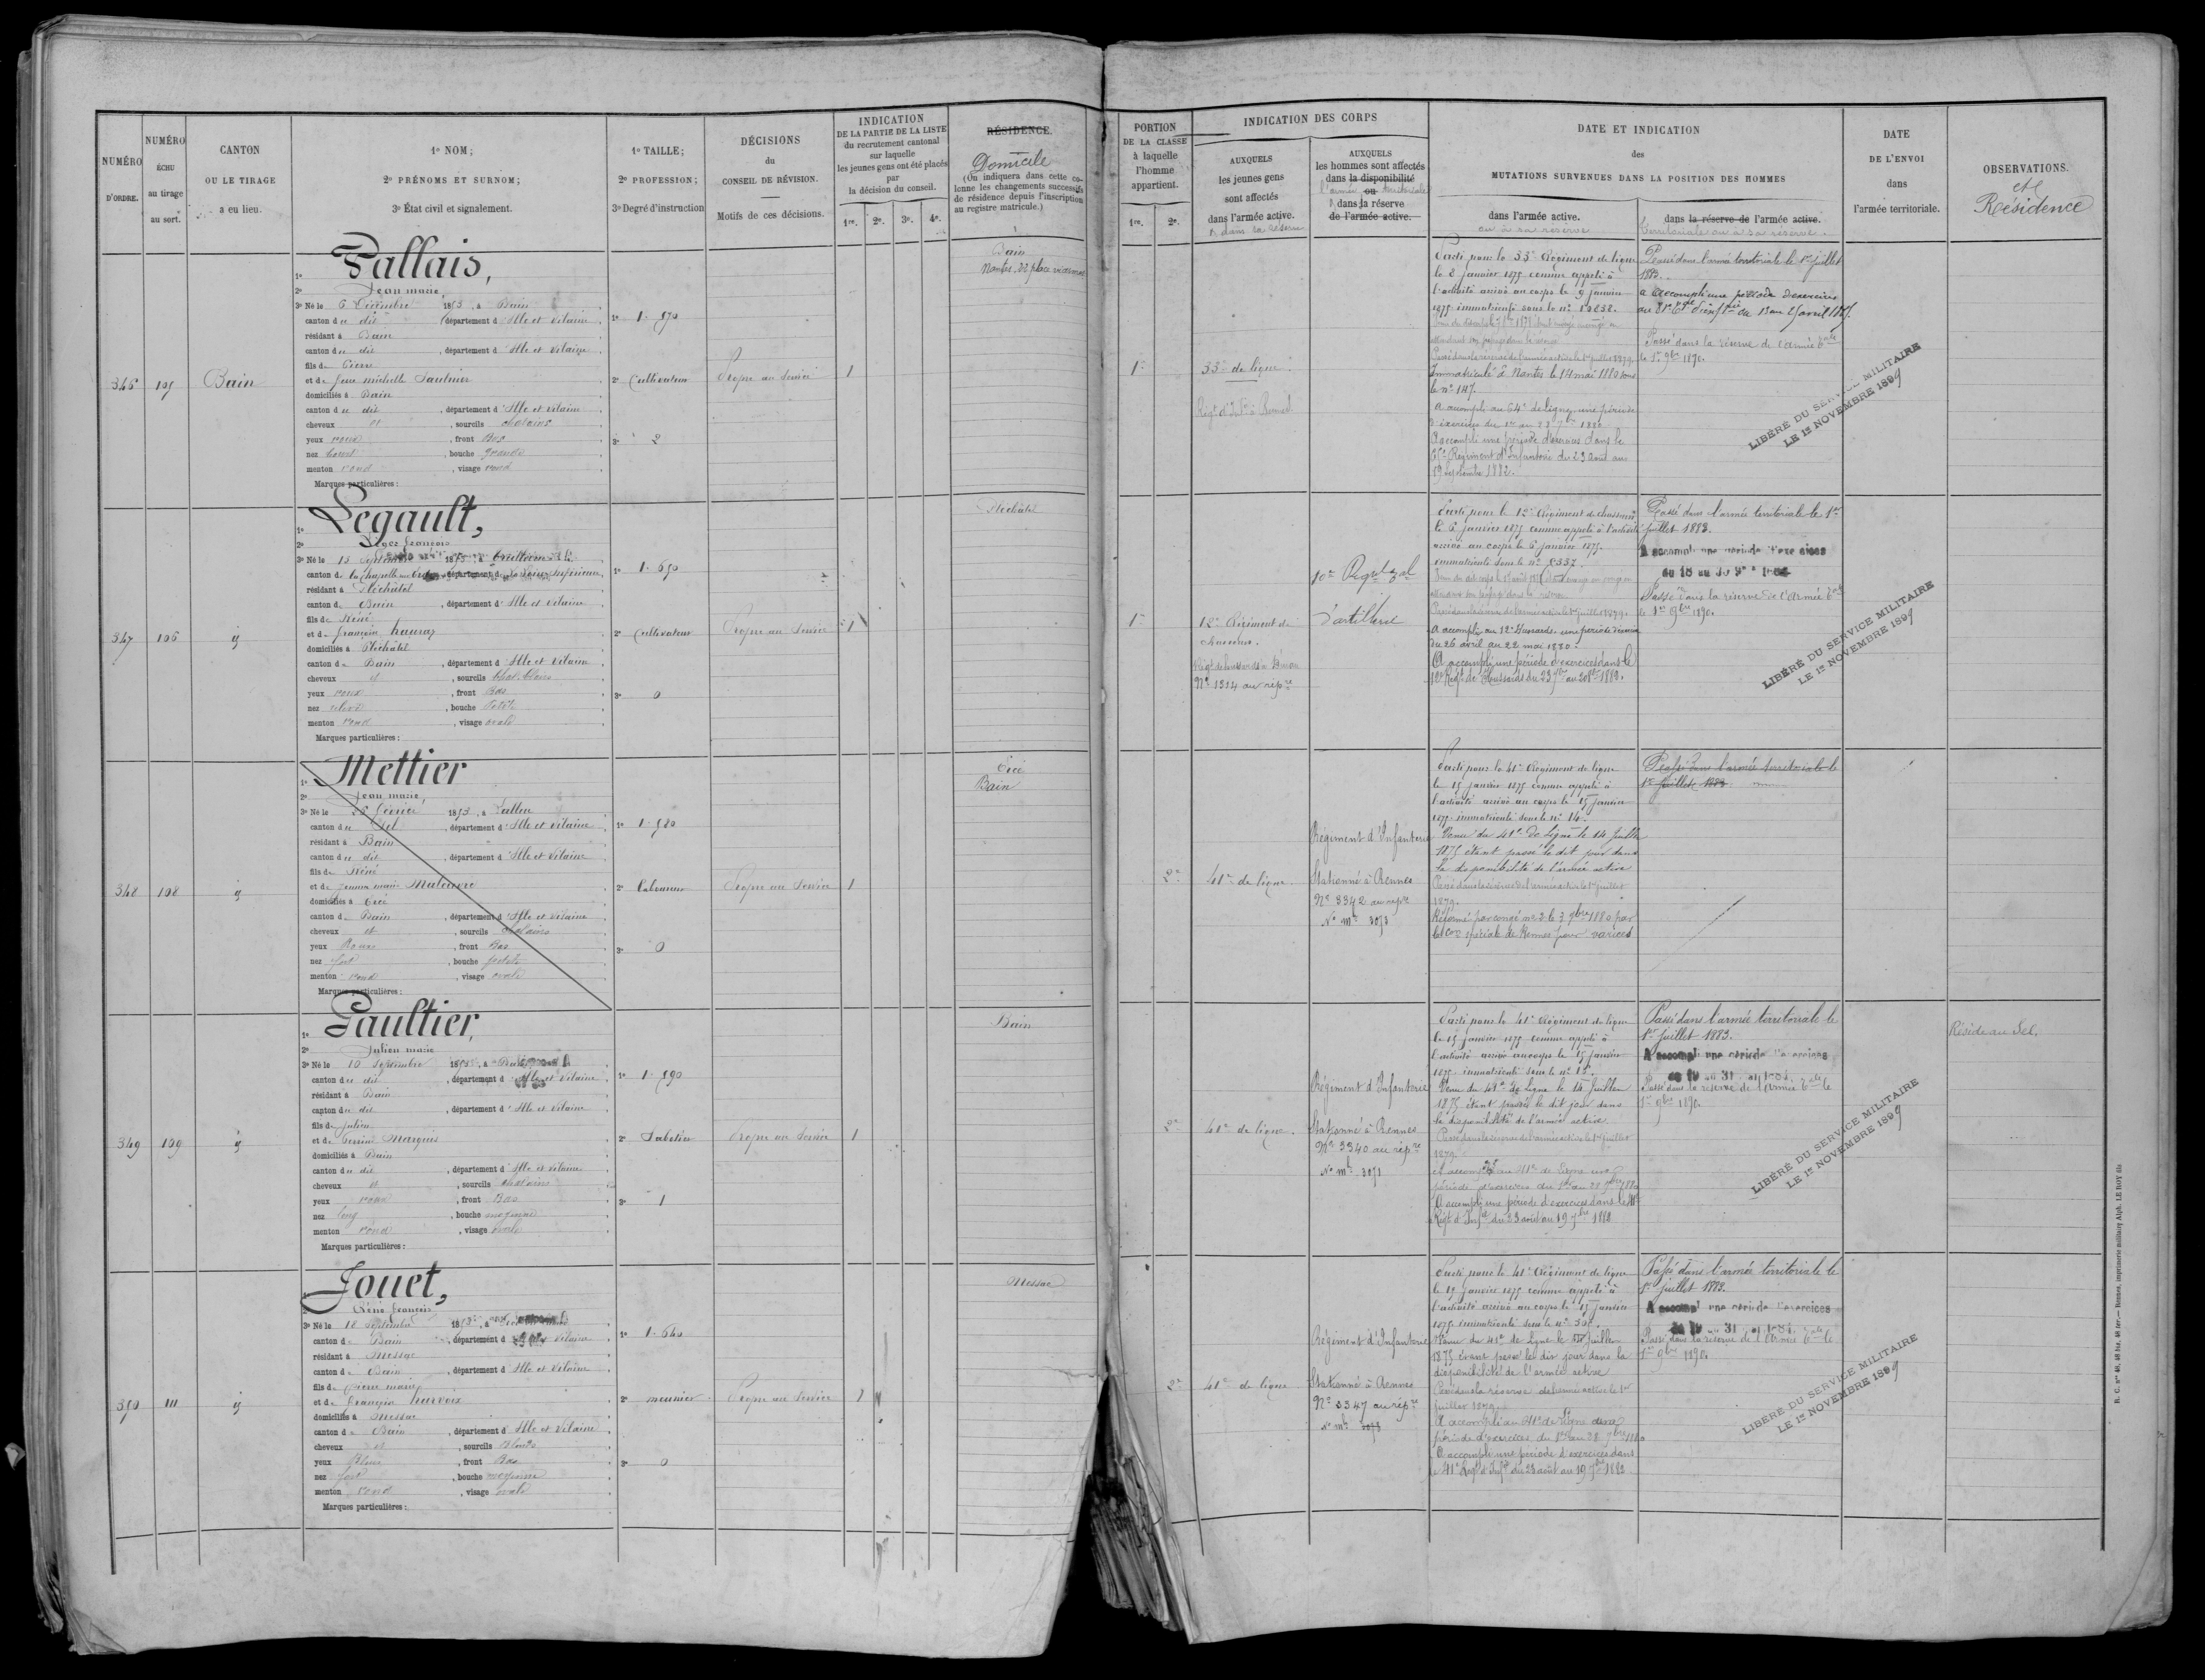 NUMÉRO
D'ORDRE.
NUMÉRO
ÉCHU
au tirage
au sort.
CANTON
OU LE TIRAGE
a eu lieu.
1º NOM;
2º PRÉNOMS ET SURNOM;
3º État civil et signalement.
1º TAILLE;
2º PROFESSION;
3º Degré d'instruction
DÉCISIONS
du
CONSEIL DE RÉVISION.
Motifs de ces décisions.
INDICATION
DE LA PARTIE DE LA LISTE
du recrutement cantonal
sur laquelle
les jeunes gens ont été placés
par
la décision du conseil.
1re. 2e. 3e. 4e.
RÉSIDENCE.
Domicile
(On indiquera dans cette co-
lonne les changements successifs
de résidence depuis l'inscription
au registre matricule.)
PORTION
DE LA CLASSE
à laquelle
l'homme
appartient.
1re. 2e.
INDICATION DES CORPS
AUXQUELS
les jeunes gens
sont affectés
dans l'armée active.
& dans la réserve
AUXQUELS
les hommes sont affectés
dans la disponibilité
ou
l'armée territoriale
& dans la réserve
de l'armée active.
DATE ET INDICATION
des
MUTATIONS SURVENUES DANS LA POSITION DES HOMMES
dans l'armée active.
ou à sa réserve
dans la réserve de l'armée active.
territoriale ou à sa réserve.
DATE
DE L'ENVOI
dans
l'armée territoriale.
OBSERVATIONS.
et
Résidence
346
105
Bain
1º Pallais,
2º Jean marie
3º Né le 6 Décembre 1853, à Bain
canton d u dit, département d'Ille et Vilaine
résidant à Bain
canton d u dit, département d'Ille et Vilaine
fils de Pierre
et de
domiciliés à Bain
canton d u dit, département d'Ille et Vilaine
cheveux et, sourcils chatains
yeux roux, front Bas
nez, bouche grande
menton rond, visage rond
Marques particulières:
1º 1.570
2º Cultivateur
3º 2
Propre au Service
1
Bain
Nantes, 32 place viarme
1re
33e de ligne
Parti pour le 33e Régiment de ligne
le 8 Janvier 1875 comme appelé à
l'activité arrivé au corps le 9 Janvier
1875 immatriculé sous le nº 10838.
Passé dans la réserve de l'armée active le 1er Juillet 1879
Immatriculé à Nantes le 14 mai 1880 sous
le nº 147.
a accompli au 64e de ligne, une période
d'exercices du 1er au 28 7bre 1880
A accompli une période d'exercices dans le
65e Régiment d'Infanterie du 23 août au
19 Septembre 1882.
Passé dans l'armée territoriale le 1er Juillet
1883.
a accompli une période d'exercices
au 81e
Passé dans la réserve de l'armée tale
le 1er 9bre 1890.
LIBÉRÉ DU SERVICE MILITAIRE
LE 1er NOVEMBRE 1899
347
106
1º Legault,
2º français
3º Né le 13
canton de la Chapelle, département de la Loire inférieure
résidant à Pléchâtel
canton de Bain, département d'Ille et Vilaine
fils de Réné
et de françoise
domiciliés à Pléchâtel
canton de Bain, département d'Ille et Vilaine
cheveux et, sourcils chat. blonds
yeux roux, front Bas
nez relevé, bouche Petite
menton rond, visage ovale
Marques particulières:
1º 1.650
2º Cultivateur
3º 0
Propre au Service
1
Pléchâtel
1re
12e Régiment de
chasseurs.
Nº 1314 au répre
10e Régt tal
d'artillerie
Parti pour le 12e Régiment de chasseurs
le 6 janvier 1875 comme appelé à l'activité
arrivé au corps le 6 janvier 1875.
immatriculé sous le nº 2337.
Passé dans la réserve de l'armée active le 1er juillet 1879
A accompli au 12e Hussards une période d'exercices
du 26 avril au 22 mai 1880.
A accompli une période d'exercices dans le
12e Régt de Hussards
Passé dans l'armée territoriale le 1er
juillet 1883.
A accompli une période d'exercices
Passé dans la réserve de l'armée tale
le 1er 9bre 1890.
LIBÉRÉ DU SERVICE MILITAIRE
LE 1er NOVEMBRE 1899
348
108
1º Mettier
2º Jean marie
3º Né le 25 février 1853, à Lalleu
canton du Sel, département d'Ille et Vilaine
résidant à Bain
canton d u dit, département d'Ille et Vilaine
fils de Réné
et de Jeanne marie
domiciliés à Ercé
canton de Bain, département d'Ille et Vilaine
cheveux et, sourcils chatains
yeux Roux, front Bas
nez fort, bouche petite
menton rond, visage ovale
Marques particulières:
1º 1.580
2º Laboureur
3º 0
Propre au Service
1
Ercé
Bain
2e
41e de ligne
Régiment d'Infanterie
Stationné à Rennes
Nº 3342 au répre
Nº mle 3073
Parti pour le 41e Régiment de ligne
le 15 janvier 1875 comme appelé à
l'activité arrivé au corps le 15 janvier
1875. immatriculé sous le nº 14.
Venu du 41e de Ligne le 14 juillet
1875 étant passé le dit jour dans
la disponibilité de l'armée active
Passé dans la réserve de l'armée active le 1er juillet
1879.
Réformé par congé nº 2 le 3 7bre 1880 par
la Con spéciale de Rennes pour varices
Passé dans l'armée territoriale le
1er Juillet 1883
349
109
1º Gaultier,
2º Julien marie
3º Né le 10 Septembre 1853, à Bain
canton d u dit, département d'Ille et Vilaine
résidant à Bain
canton d u dit, département d'Ille et Vilaine
fils de Julien
et de Perrine Marquis
domiciliés à Bain
canton d u dit, département d'Ille et Vilaine
cheveux et, sourcils chatains
yeux roux, front Bas
nez long, bouche moyenne
menton rond, visage ovale
Marques particulières:
1º 1.590
2º Sabotier
3º 1
Propre au Service
1
Bain
2e
41e de ligne.
Régiment d'Infanterie
Stationné à Rennes
Nº 3340 au répre
Nº mle 3071
Parti pour le 41e Régiment de ligne
le 15 janvier 1875 comme appelé à
l'activité arrivé au corps le 15 janvier
1875. immatriculé sous le nº 15.
Venu du 41e de Ligne le 14 Juillet
1875 étant passé le dit jour dans
la disponibilité de l'armée active.
Passé dans la réserve de l'armée active le 1er juillet
1879
A accompli au 41e de Ligne une
période d'exercices du 1er au 28 7bre 1880
A accompli une période d'exercices dans le 41e
Régt d'Infie du 23 août au 19 7bre 1882
Passé dans l'armée territoriale le
1er Juillet 1883.
A accompli une période d'exercices
Passé dans la réserve de l'armée tale le
1er 9bre 1890
LIBÉRÉ DU SERVICE MILITAIRE
LE 1er NOVEMBRE 1899
Réside au Sel.
350
111
1º Jouet,
2º Réné français
3º Né le 18 Septembre 1853, à
canton de Bain, département d'Ille et Vilaine
résidant à Messac
canton de Bain, département d'Ille et Vilaine
fils de Pierre marie
et de françoise hurvoix
domiciliés à Messac
canton de Bain, département d'Ille et Vilaine
cheveux et, sourcils Blonds
yeux Bleus, front Bas
nez fort, bouche moyenne
menton rond, visage ovale
Marques particulières:
1º 1.640
2º meunier
3º 0
Propre au Service
1
Messac
2e
41e de ligne
Régiment d'Infanterie
Stationné à Rennes
Nº 3347 au répre
Nº mle 3078
Parti pour le 41e Régiment de ligne
le 15 Janvier 1875 comme appelé à
l'activité arrivé au corps le 15 janvier
1875. immatriculé sous le nº
Venu du 41e de Ligne le 14 Juillet
1875 étant passé le dit jour dans la
disponibilité de l'armée active
Passé dans la réserve de l'armée active le 1er
juillet 1879
A accompli au 41e de Ligne une
période d'exercices du 1er au 28 7bre 1880
A accompli une période d'exercices dans
le 41e Régt d'Infie du 23 août au 19 7bre 1882
Passé dans l'armée territoriale le
1er Juillet 1883.
A accompli une période d'exercices
Passé dans la réserve de l'armée tale le
1er 9bre 1890
LIBÉRÉ DU SERVICE MILITAIRE
LE 1er NOVEMBRE 1899
Rennes, imprimerie militaire Alph. LE ROY fils